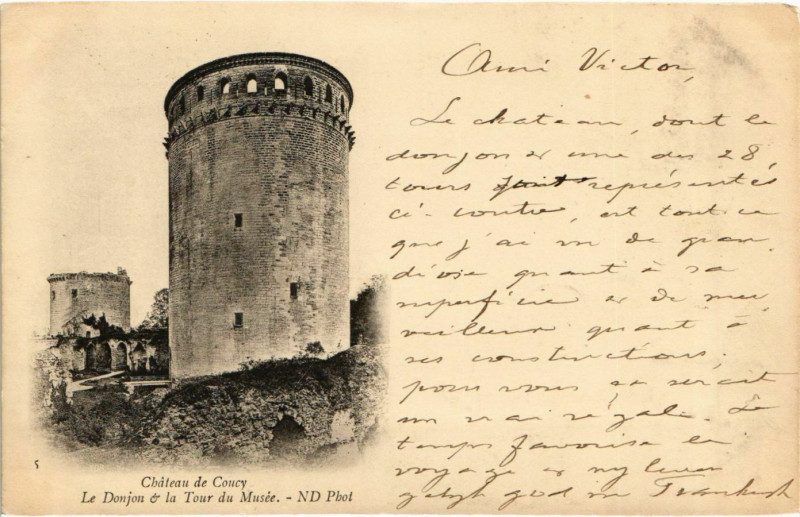 Ami Victor,
Le chateau, dont le
donjon & une des 28
tours représentés
ci-contre, est tout ce
que j'ai vu de gran
diose quant à sa
superficie & de mer
veilleux quant à
ses constructions;
pour vous ça serait
un vrai régale. Le
temps favorise le
voyage &
god
5
Château de Coucy
Le Donjon & la Tour du Musée. - ND Phot